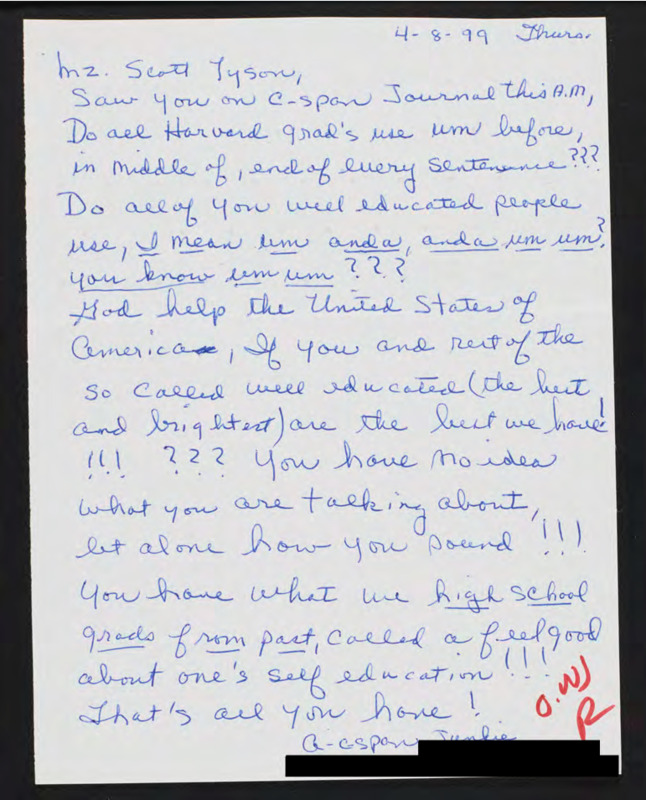 4-8-99 Thurs.
Mz. Scott Tyson,
Saw you on C-span Journal this A.M,
Do all Harvard grad's use um before,
in middle of, end of every sentenance???
Do all of you well educated people
use, I mean um anda, anda um um?
you know um um ???
God help the United States of
America, If you and rest of the
so called well educated (the best
and brightest) are the best we have!
!!! ??? You have no idea
what you are talking about,
let alone how you sound !!!
You have what we high school
grads from past, called a feel good
about one's self education !!!
That's all you have !
O.W)
R
a-cspan Junkie